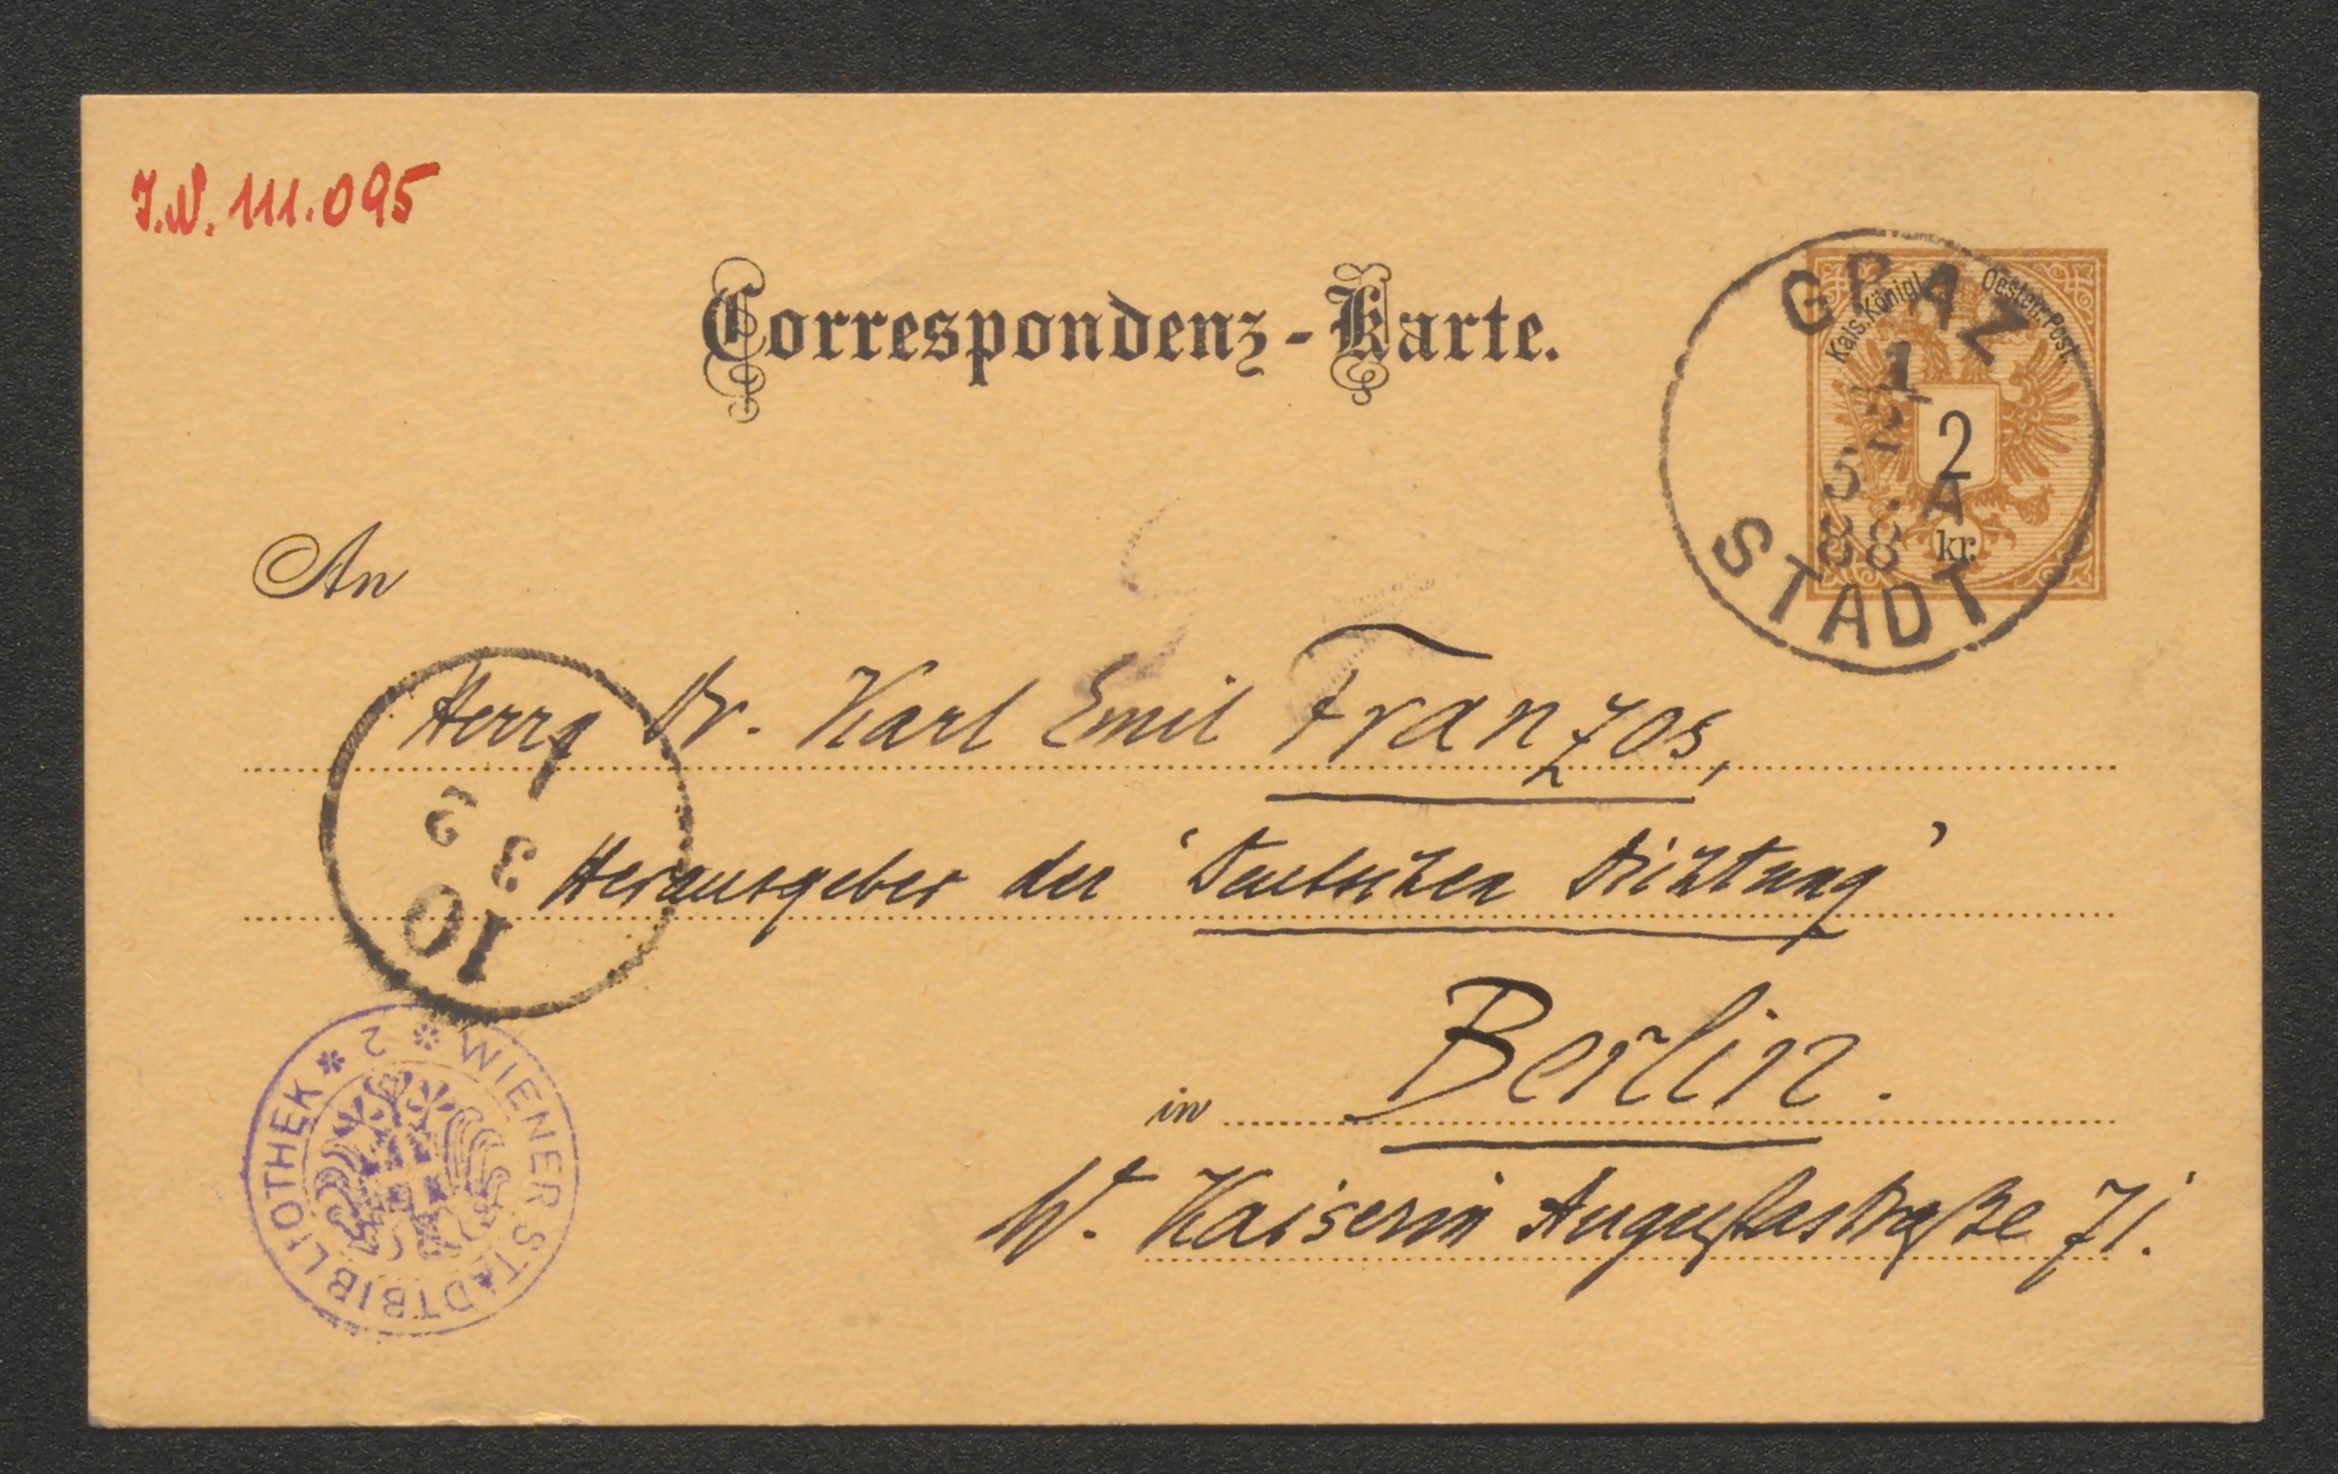 J.N. 111.095
Correspondenz-Karte.
Kais. Königl. Oesterr. Post.
2
kr.
GRAZ
1
2
5 A
88
STADT
An
Herrn Dr. Karl Emil Franzos,
Herausgeber der 'Deutschen Dichtung'
in Berlin.
W. Kaiserin Augustastraße 71.
1
3
10
WIENER STADTBIBLIOTHEK * 2 *